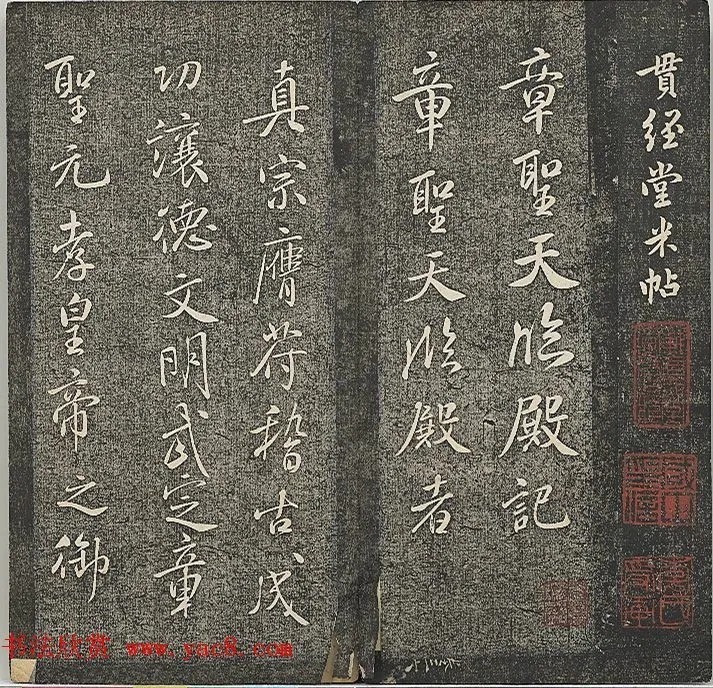 贯经堂米帖
章聖天臨殿記
章聖天臨殿者
真宗膺符稽古成
功讓德文明武定章
聖元孝皇帝之御
书法欣赏 www.yac8.com